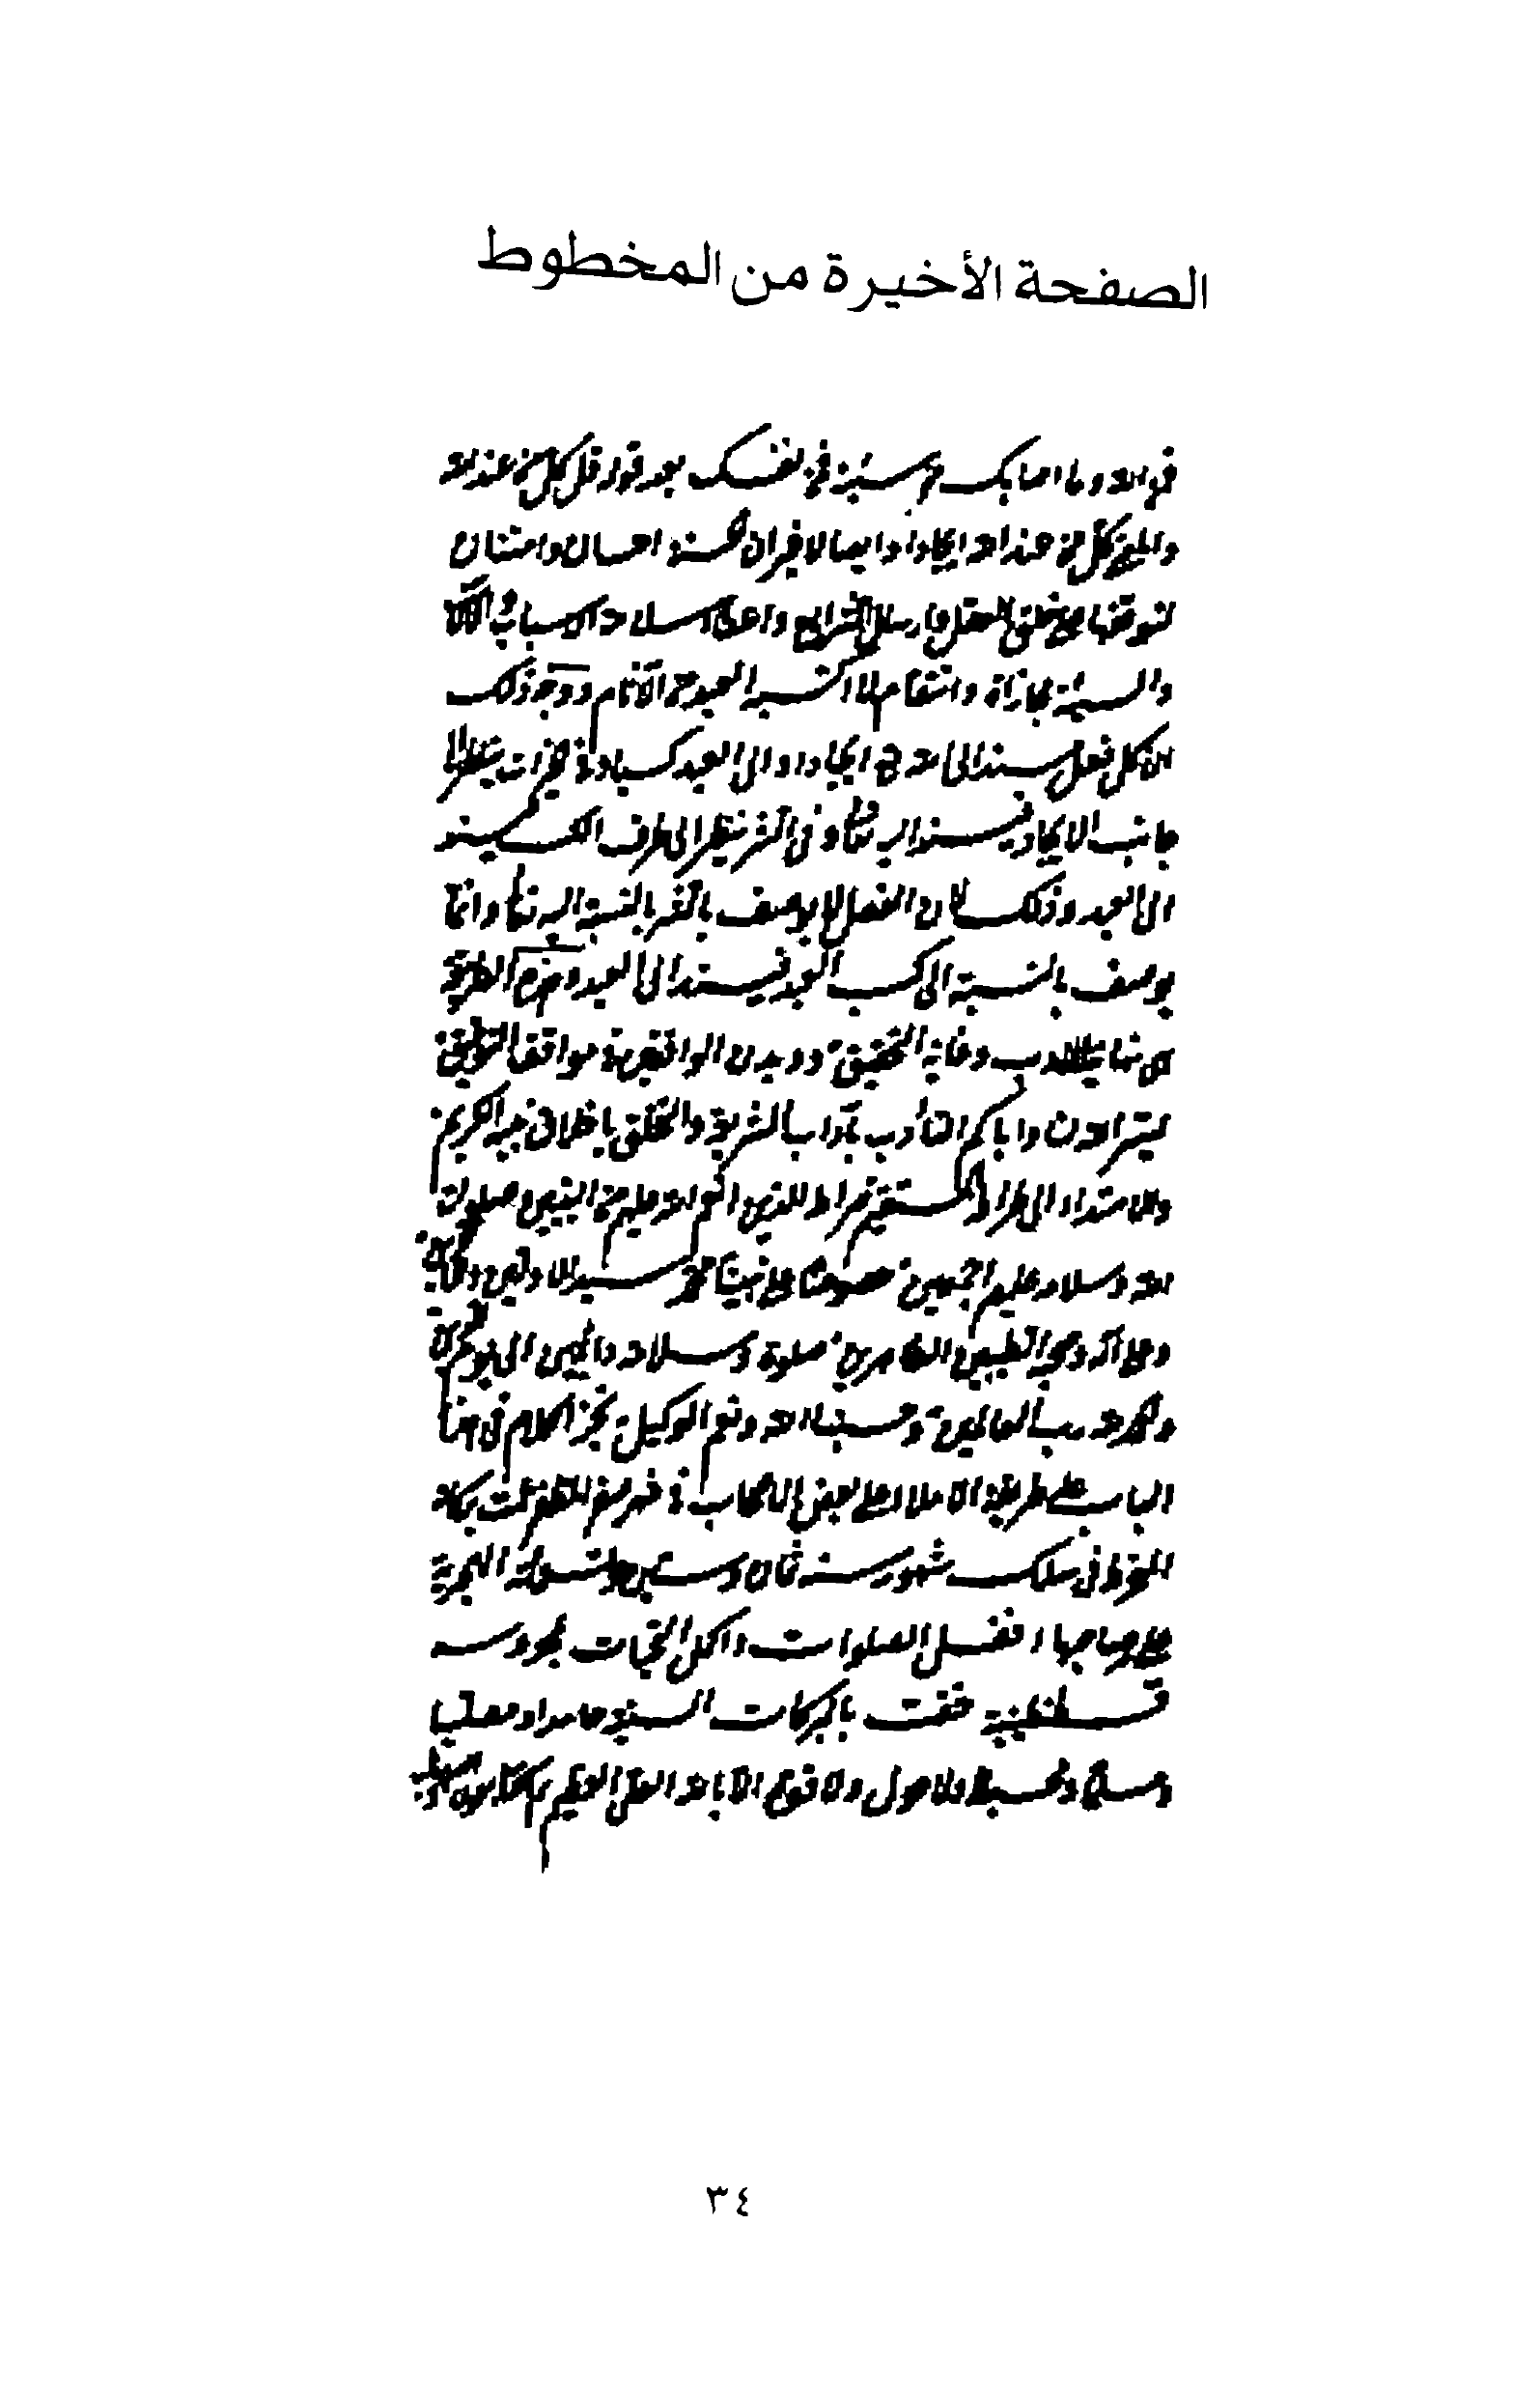 الصفحة الأخيرة من المخطوط
فمن الله وما اصابك من سيئة فمن نفسك بعد قوله قل كل من عند الله
والمعنى كل من عند الله ايجادا وايصالا غير ان الحسنة احسان وامتنان
لتوقفها على خلق العقل وارسال الشرايع واعطاء الاسلام الاسباب
والسيئة مجازاة وانتقام لما اكتسبه العبد من الآثام ووجه ذلك
ان كل فعل يسند الى الله تع ايجادا والى العبد كسبا وفي الخيرات ينظر الى
جانب الايجاد فيسند اليه تعالى وفي الشر ينظر الى طرف الكسب فيسند
الى العبد وذلك لان الفعل لا يوصف بالشر بالنسبة اليه تعالى وانما
يوصف بالنسبة الى كسب العبد فيسند الى العبد وهذه الطريقة
من نهاية الادب وغاية التحقيق وديدن الواقفين في مواقف التوفيق
يسر الله لنا واياكم التأدب بآداب الشريعة والتخلق باخلاق نبيه الكريم
والامتداد الى الصراط المستقيم صراط الذين انعم الله عليهم من النبيين وصلوات
الله وسلامه عليهم اجمعين خصوصا على نبينا محمد سيد الاولين والآخرين
وعلى آله وصحبه الطيبين الطاهرين صلوة وسلاما دائمين الى يوم
والحمد لله رب العالمين وحسبنا الله ونعم الوكيل نجز الكلام في هذا
الباب على طريقة الاملاء على بعض الاصحاب في شهر صفر المظفر
المنخرط في سلك شهور سنة ثمان وستين وتسعمائة الهجرية
على صاحبها افضل الصلوات واكمل التحيات بمحروسه
قسطنطينية حفت بالبركات السنية حامدا ومصليا
ومسلما ومحسبلا ولا حول ولا قوة الا بالله العلي العظيم
٣٤